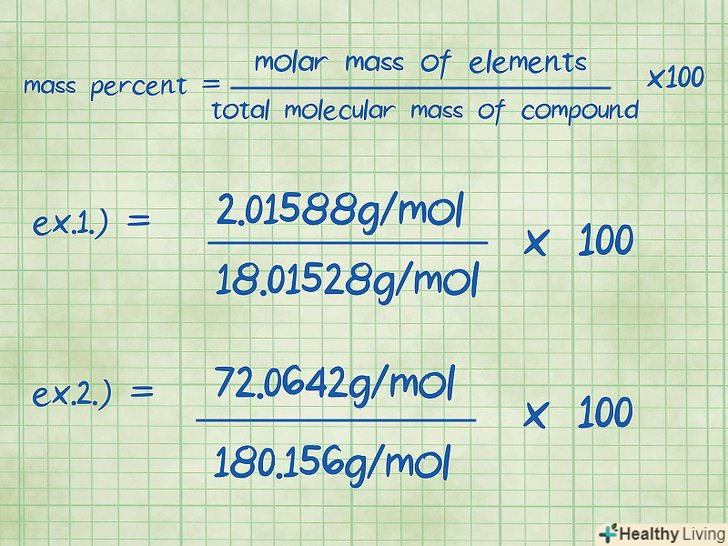 molar mass of elements
mass percent = ×100
total molecular mass of compound
2.01588g/mol
ex.1.) = x 100
18.01528g/mol
72.0642g/mol
ex.2.) = x 100
180.156g/mol
+Healthy Living